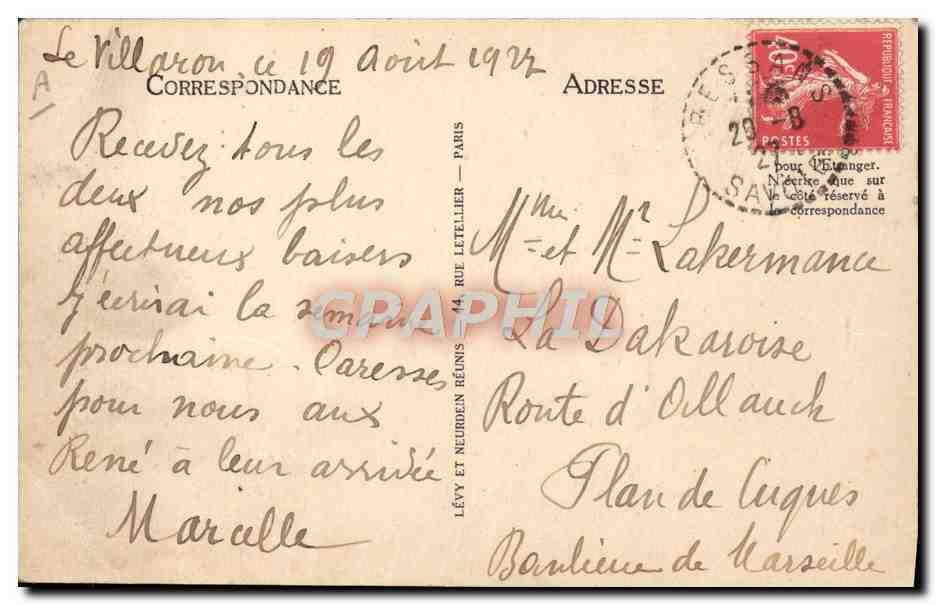 Le Villaron, ce 19 Août 1927
A
CORRESPONDANCE
Recevez tous les
deux nos plus
affectueux baisers
J'écrirai la semaine
prochaine. Caresses
pour nous aux
René à leur arrivée
Marcelle
LÉVY ET NEURDEIN RÉUNIS 44, RUE LETELLIER - PARIS
ADRESSE
REPUBLIQUE FRANÇAISE
40c
POSTES
BESSANS
20 - 8
27
SAVOIE
pour l'Etranger.
N'écrire que sur
le côté réservé à
la correspondance
Mme et Mr Lakermance
La Dakaroise
Route d'Allauch
Plan de Cuques
Banlieue de Marseille
CPAPHIL